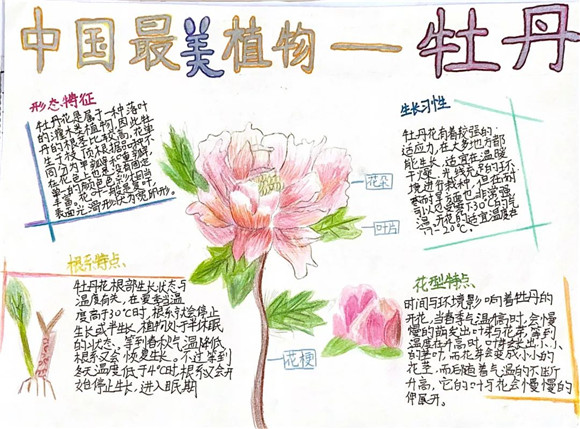 中国最美植物—牡丹
形态特征
牡丹花是属于一种落叶
的灌木类植物,因此牡
丹的根系比较高,花单
生于枝顶,根据品种不
同分为单瓣和重瓣,
在颜色上也没有固定
单一的颜色,可以相当
丰富。花叶一般是复叶,
表面无毛,形状为宽卵形。
生长习性
牡丹花有着较强的
适应力,在大多地方都
能生长,适宜在温暖
干燥,光线充足的环
境进行栽种,但在耐
寒的享受度也非常强,
可以忍受零下30℃的气
温,开花的适宜温度在
17-20℃。
花朵
叶片
花梗
根系特点
牡丹花根部生长状态与
温度有关,在夏季当温
度高于30℃时,根系就会停止
生长或半生长,植物处于半休眠
的状态,等到春秋气温降低
根系又会恢复生长。不过等到
冬天温度低于4℃时,根系又会开
始停止生长,进入眠期
花型特点
时间与环境影响着牡丹的
开花,当春季气温稍高时,会慢
慢的萌发出叶芽与花芽,等到
温度在升高时,叶芽长出小小
的茎叶,而花芽会变成小小的
花茎,而后随着气温的不断
升高,它的叶与花会慢慢的
伸展开。